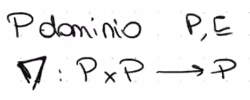 P dominio P, ⊑
∇ : P × P ⟶ P